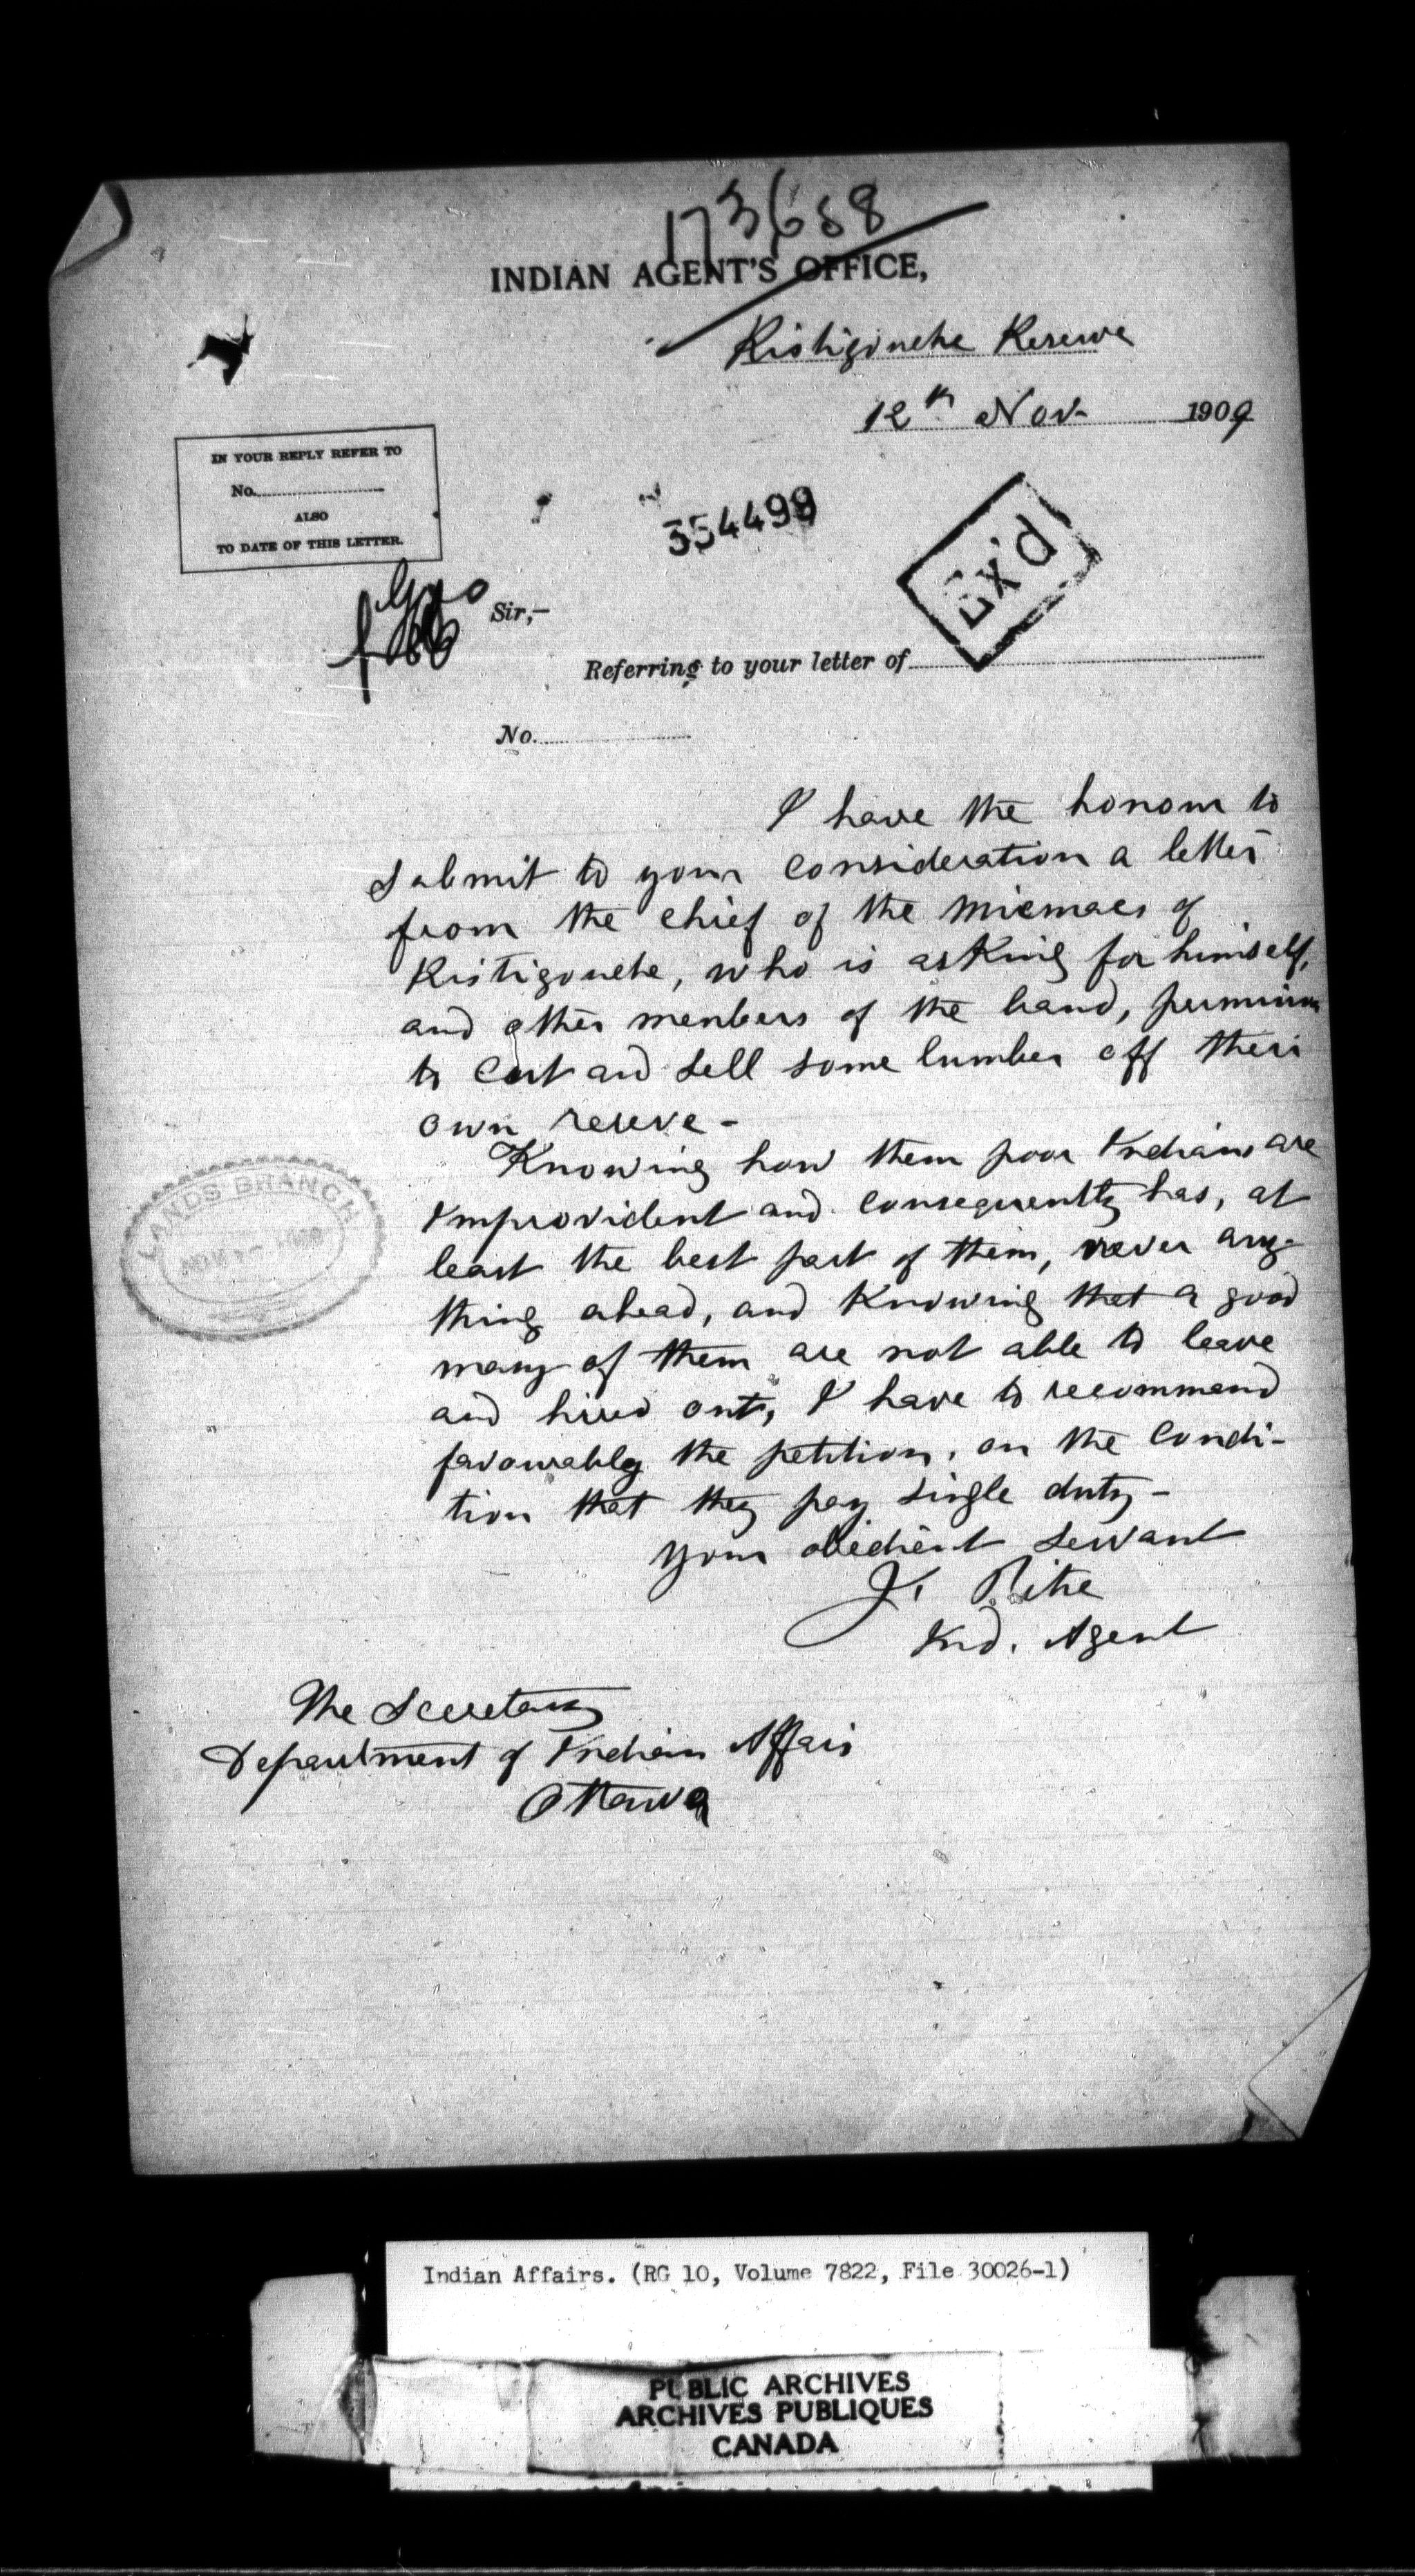 173658
INDIAN AGENT'S OFFICE,
Ristigouche Reserve
12th Nov- 1909
IN YOUR REPLY REFER TO
No.
ALSO
TO DATE OF THIS LETTER.
354499
Ex'd
Sir,-
Referring to your letter of
No.
I have the honour to
submit to your consideration a letter
from the chief of the Micmacs of
Ristigouche, who is asking for himself,
and other menbers of the band, permission
to cut and sell some lumber off their
own reserve -
Knowing how them poor Indians are
improvident and consequently has, at
least the best part of them, never any-
thing ahead, and knowing that a good
many of them are not able to leave
and hired out, I have to recommend
favourably the petition, on the condi-
tion that they pay single duty -
your obedient servant
J. Pitre
Ind. Agent
LANDS BRANCH
The Secretary
Department of Indian Affairs
Ottawa
Indian Affairs. (RG 10, Volume 7822, File 30026-1)
PUBLIC ARCHIVES
ARCHIVES PUBLIQUES
CANADA